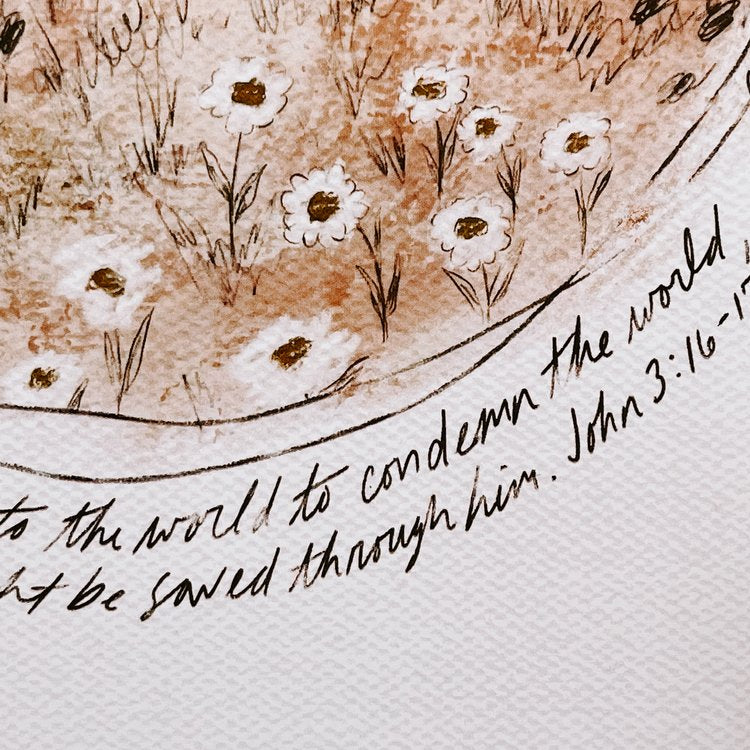 to the world to condemn the world
ht be saved through him. John 3:16-17